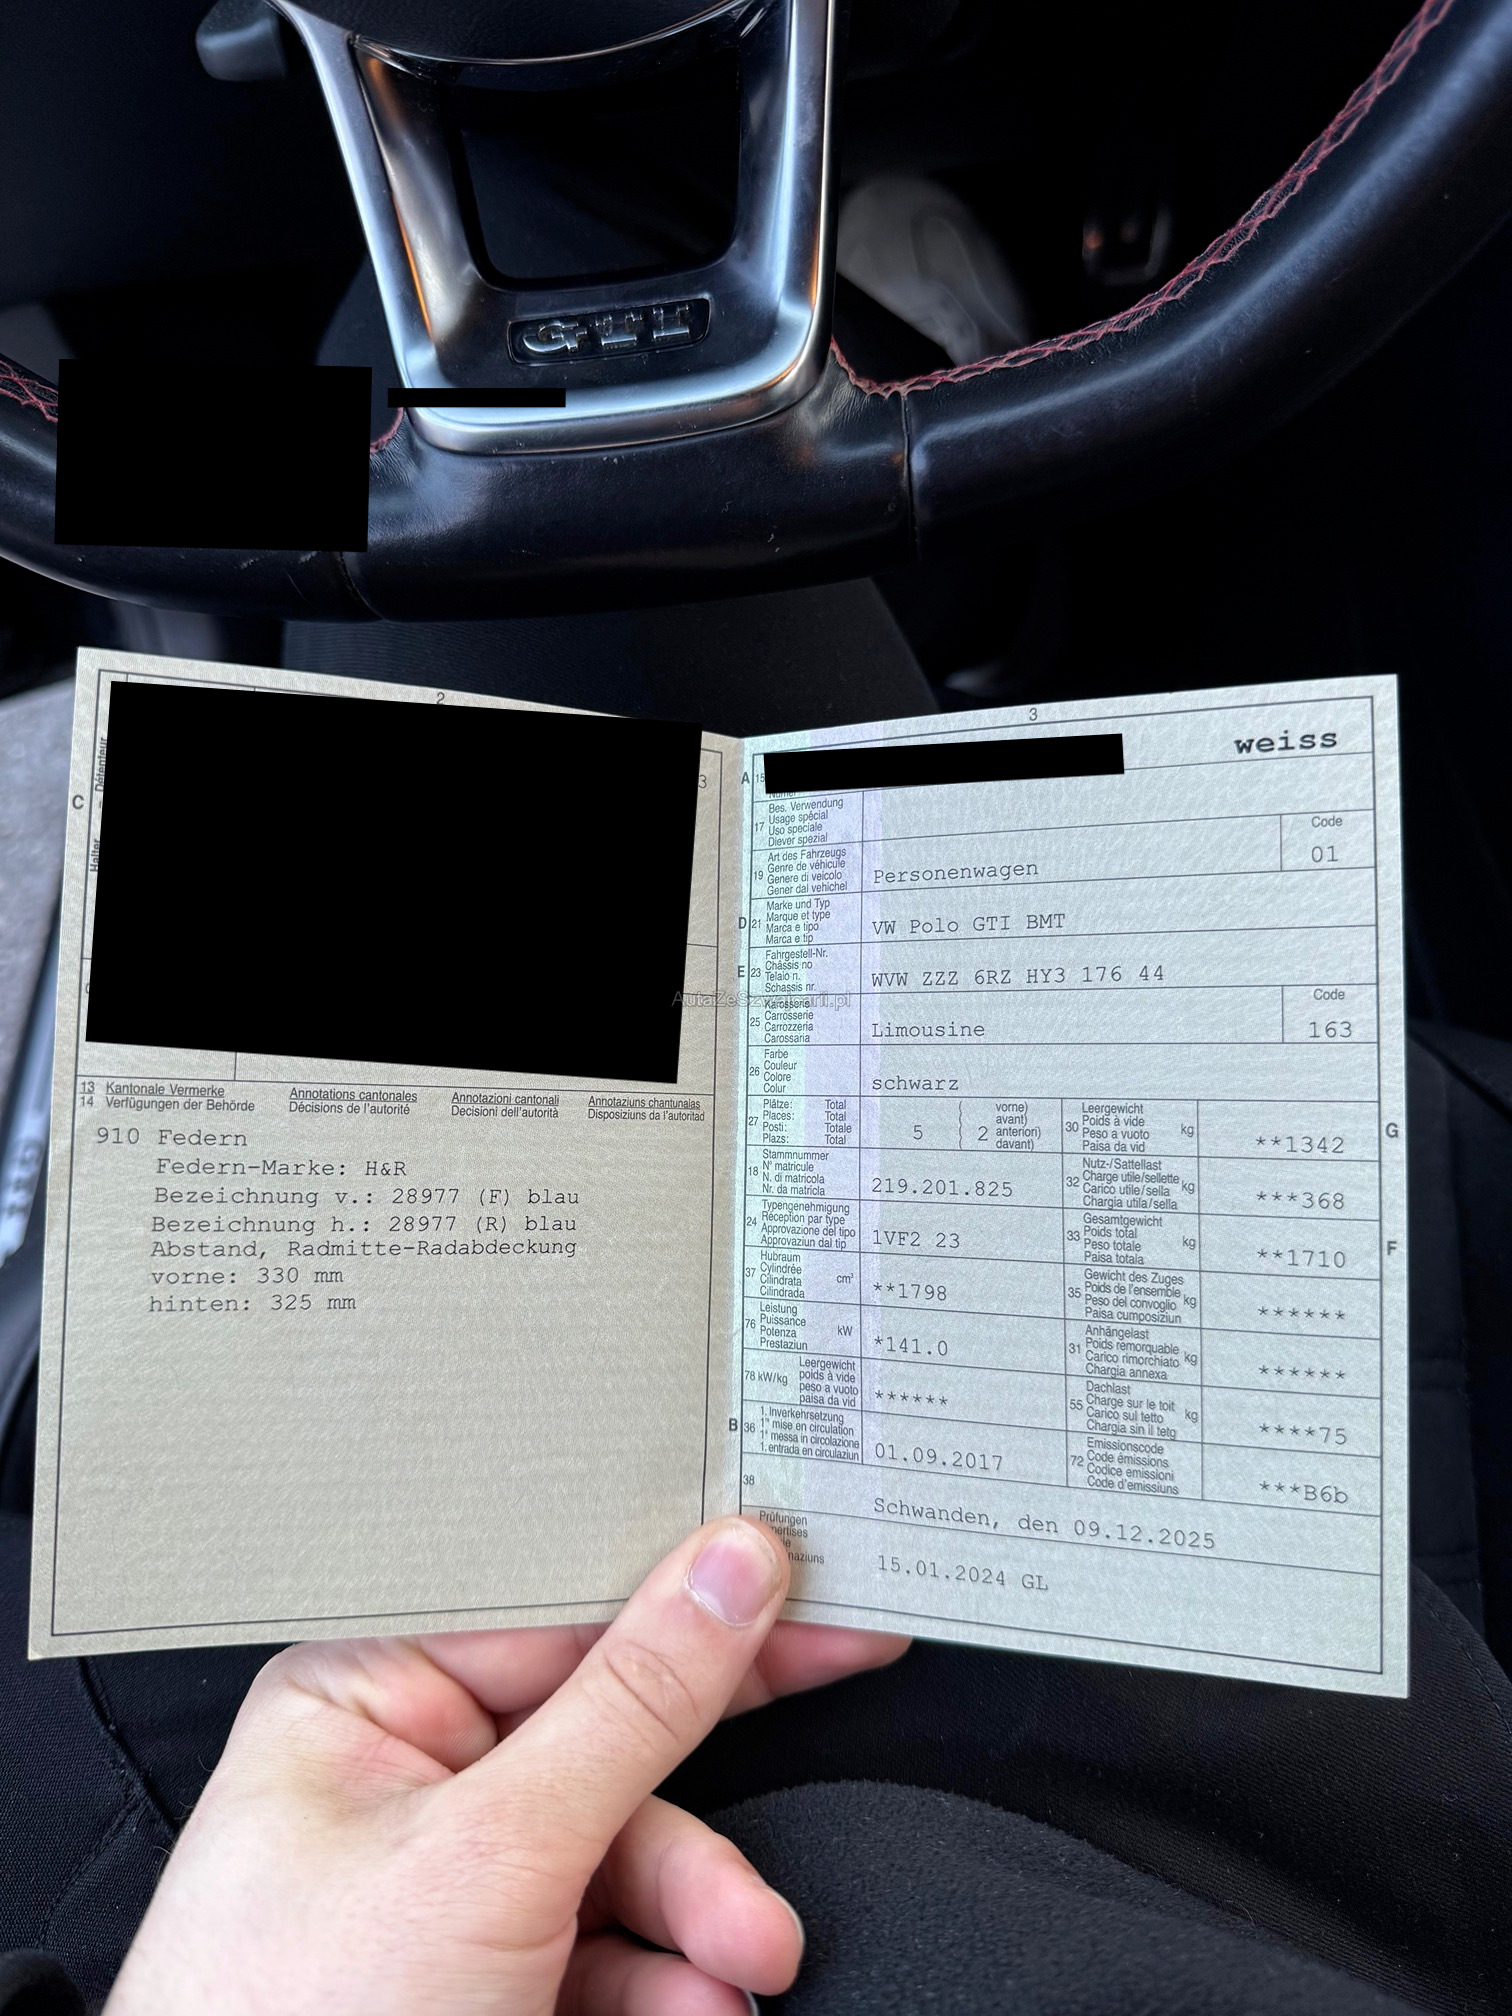 GTI
2
Halter – Détenteur
C
3
13 Kantonale Vermerke Annotations cantonales Annotazioni cantonali Annotaziuns chantunalas
14 Verfügungen der Behörde Décisions de l'autorité Decisioni dell'autorità Disposiziuns da l'autoritad
910 Federn
Federn-Marke: H&R
Bezeichnung v.: 28977 (F) blau
Bezeichnung h.: 28977 (R) blau
Abstand, Radmitte-Radabdeckung
vorne: 330 mm
hinten: 325 mm
3
weiss
A 15
17 Bes. Verwendung
Usage spécial
Uso speciale
Diever spezial
19 Art des Fahrzeugs
Genre de véhicule
Genere di veicolo
Gener dal vehichel
Personenwagen
Code
01
D 21 Marke und Typ
Marque et type
Marca e tipo
Marca e tip
VW Polo GTI BMT
E 23 Fahrgestell-Nr.
Châssis no
Telaio n.
Schassis nr.
WVW ZZZ 6RZ HY3 176 44
AutaZeSzwajcarii.pl
25 Karosserie
Carrosserie
Carrozzeria
Carossaria
Limousine
Code
163
26 Farbe
Couleur
Colore
Colur
schwarz
27 Plätze: Total
Places: Total
Posti: Totale
Plazs: Total
5 2
vorne)
avant)
anteriori)
davant)
30 Leergewicht
Poids à vide
Peso a vuoto
Paisa da vid
kg
**1342
G
18 Stammnummer
N° matricule
N. di matricola
Nr. da matricla
219.201.825
32 Nutz-/Sattellast
Charge utile/sellette
Carico utile/sella
Chargia utila/sella
kg
***368
24 Typengenehmigung
Réception par type
Approvazione del tipo
Approvaziun dal tip
1VF2 23
33 Gesamtgewicht
Poids total
Peso totale
Paisa totala
kg
**1710
F
37 Hubraum
Cylindrée
Cilindrata
Cilindrada
cm³
**1798
35 Gewicht des Zuges
Poids de l'ensemble
Peso del convoglio
Paisa cumposiziun
kg
******
76 Leistung
Puissance
Potenza
Prestaziun
kW
*141.0
31 Anhängelast
Poids remorquable
Carico rimorchiato
Chargia annexa
kg
******
78 kW/kg Leergewicht
poids à vide
peso a vuoto
paisa da vid
******
55 Dachlast
Charge sur le toit
Carico sul tetto
Chargia sin il tetg
kg
****75
B 36 1. Inverkehrsetzung
1re mise en circulation
1a messa in circolazione
1. entrada en circulaziun
01.09.2017
72 Emissionscode
Code émissions
Codice emissioni
Code d'emissiuns
***B6b
38
Schwanden, den 09.12.2025
Prüfungen
15.01.2024 GL